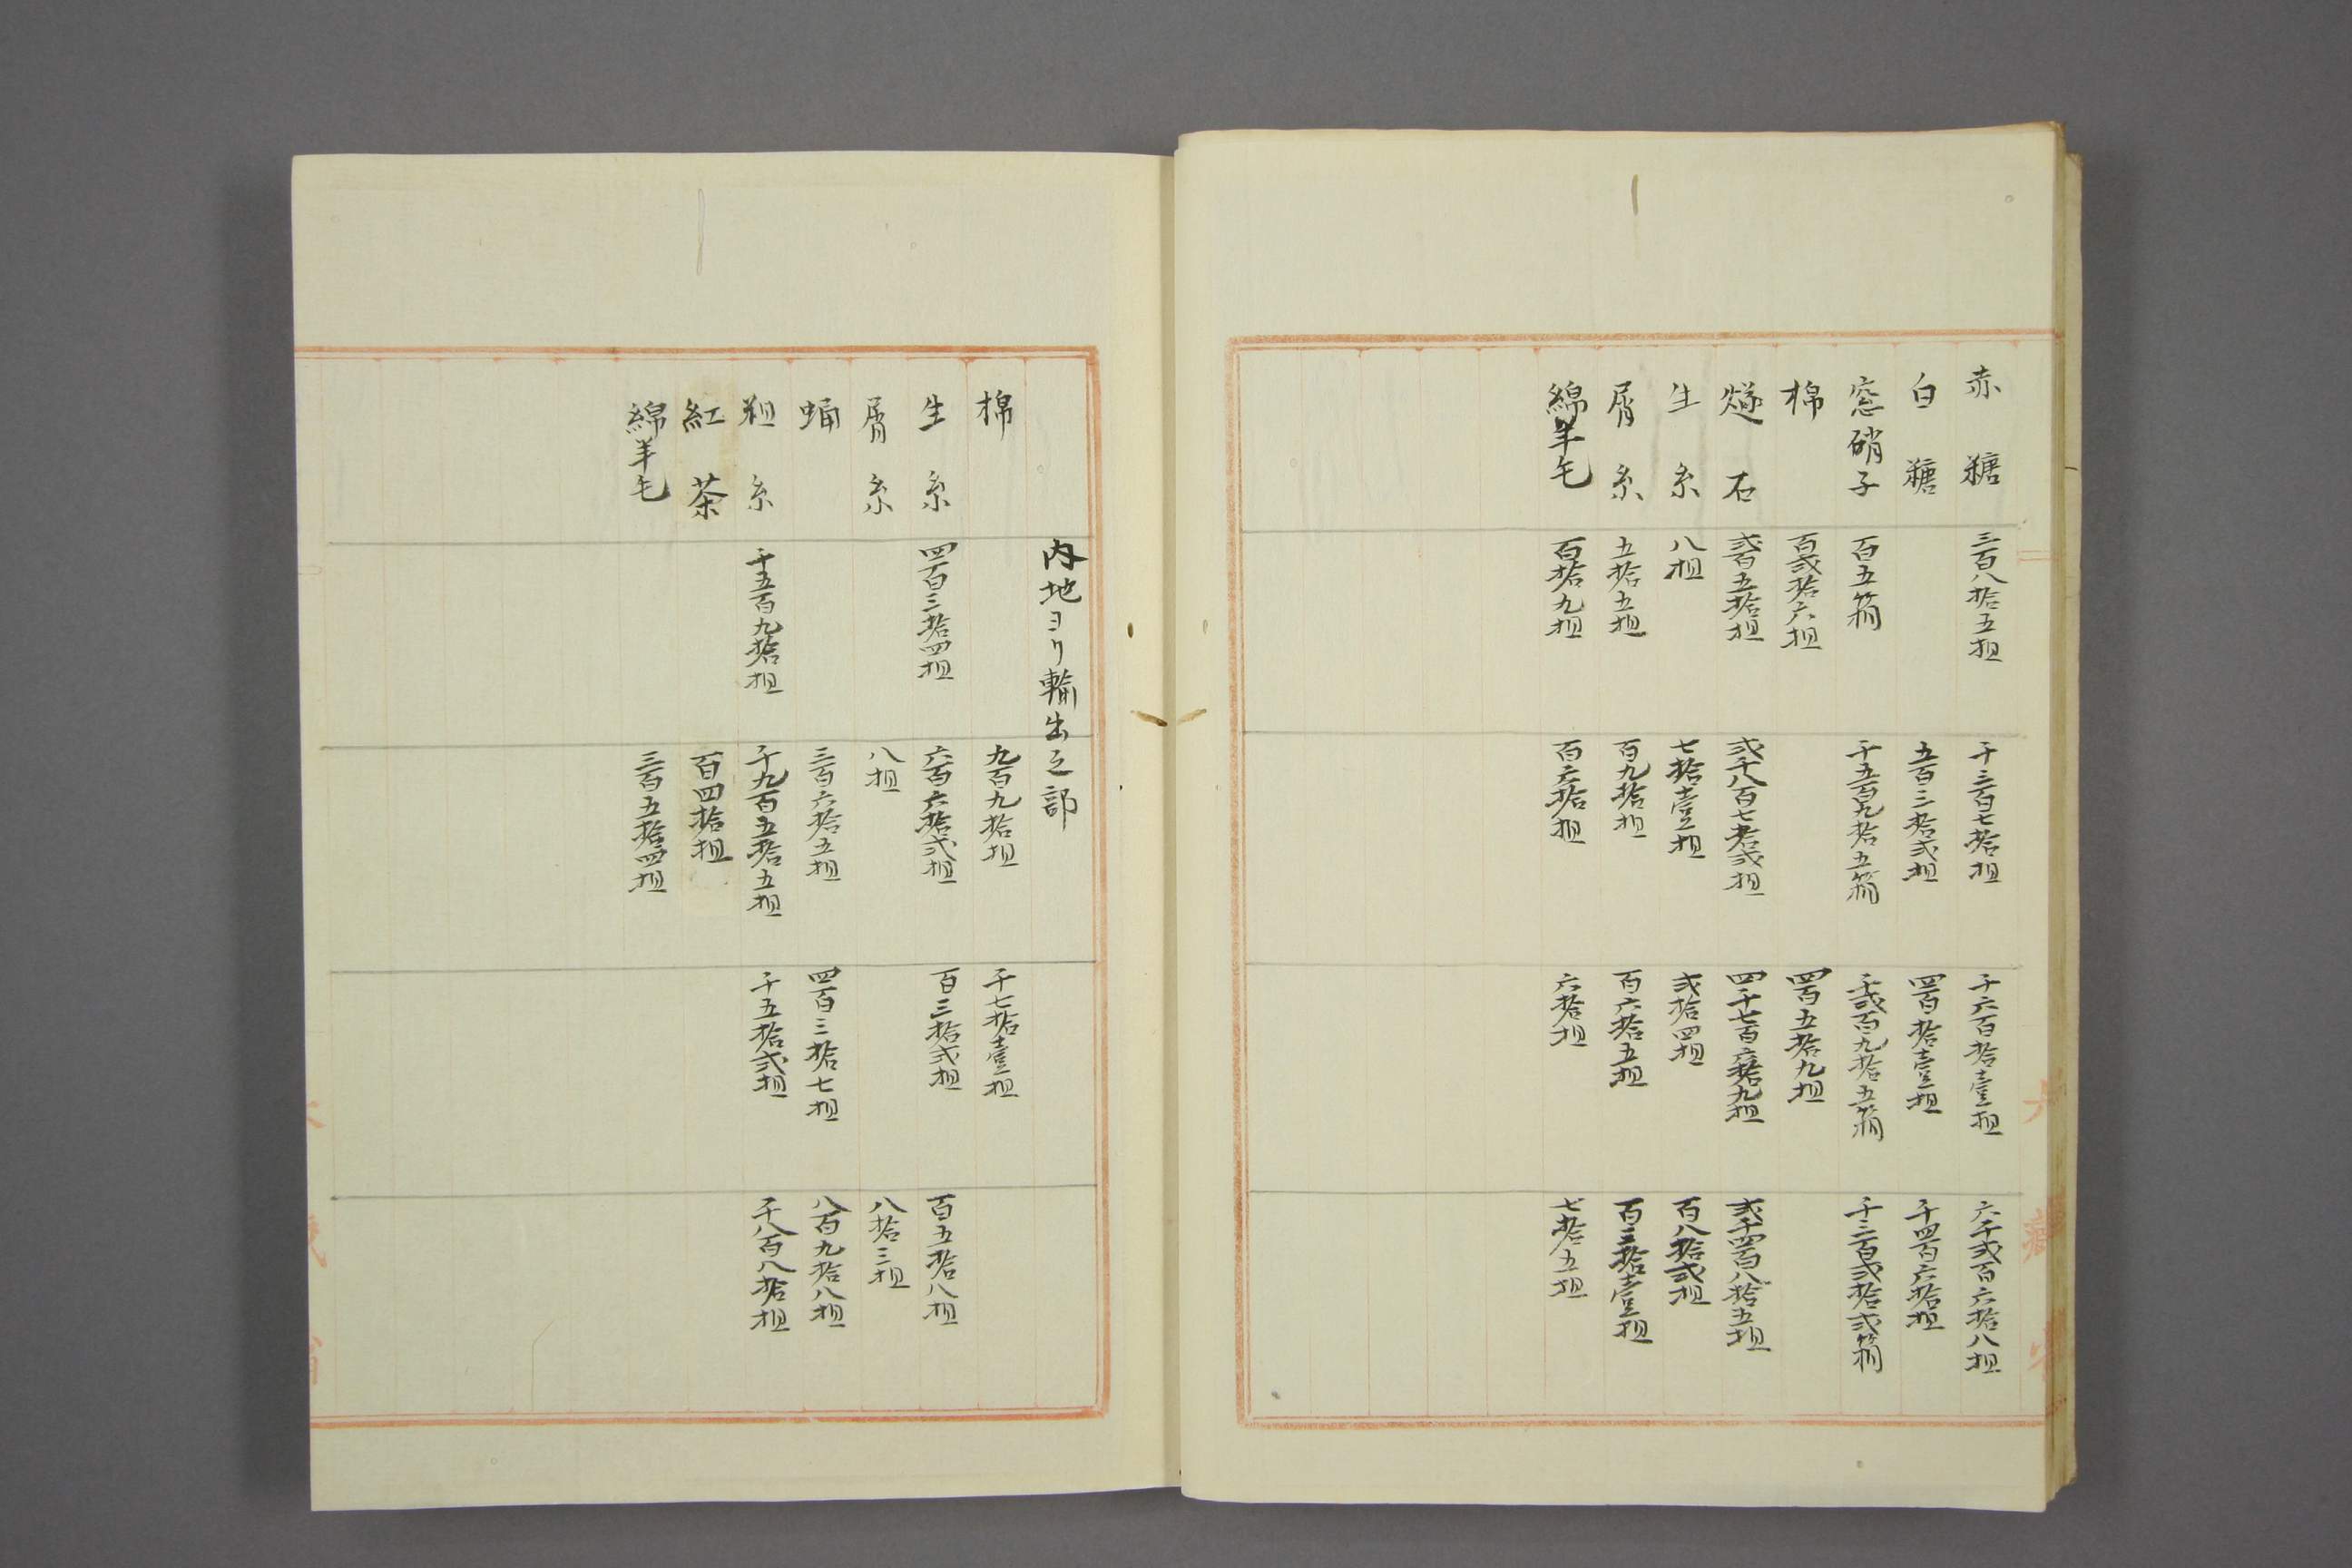 赤糖 三百八拾五担 千三百七拾担 千六百拾壹担 六千弐百六拾八担
白糖 五百三拾弐担 四百拾壹担 千四百六拾担
窓硝子 百五箱 千五百九拾五箱 千弐百九拾五箱 千三百弐拾弐箱
棉 百弐拾六担 四百五拾九担
燧石 弐百五拾担 弐千八百七拾弐担 四千七百六拾九担 弐千四百八拾五担
生糸 八担 七拾壹担 弐拾四担 百八拾弐担
屑糸 五拾五担 百九拾担 百六拾五担 百三拾壹担
綿羊毛 百拾九担 百六拾担 六拾担 七拾五担
内地ヨリ輸出之部
棉 九百九拾担 千七拾壹担
生糸 四百三拾四担 六百六拾弐担 百三拾弐担 百五拾八担
屑糸 八担 八拾三担
蛹 三百六拾五担 四百三拾七担 八百九拾八担
粗糸 千五百九拾担 千九百五拾五担 千五拾弐担 千八百八拾担
紅茶 百四拾担
綿羊毛 三百五拾四担